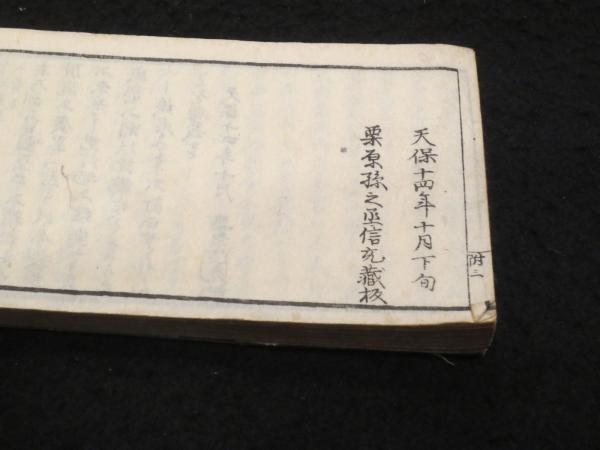 天保十四年十月下旬
栗原孫之丞信充藏板
附二